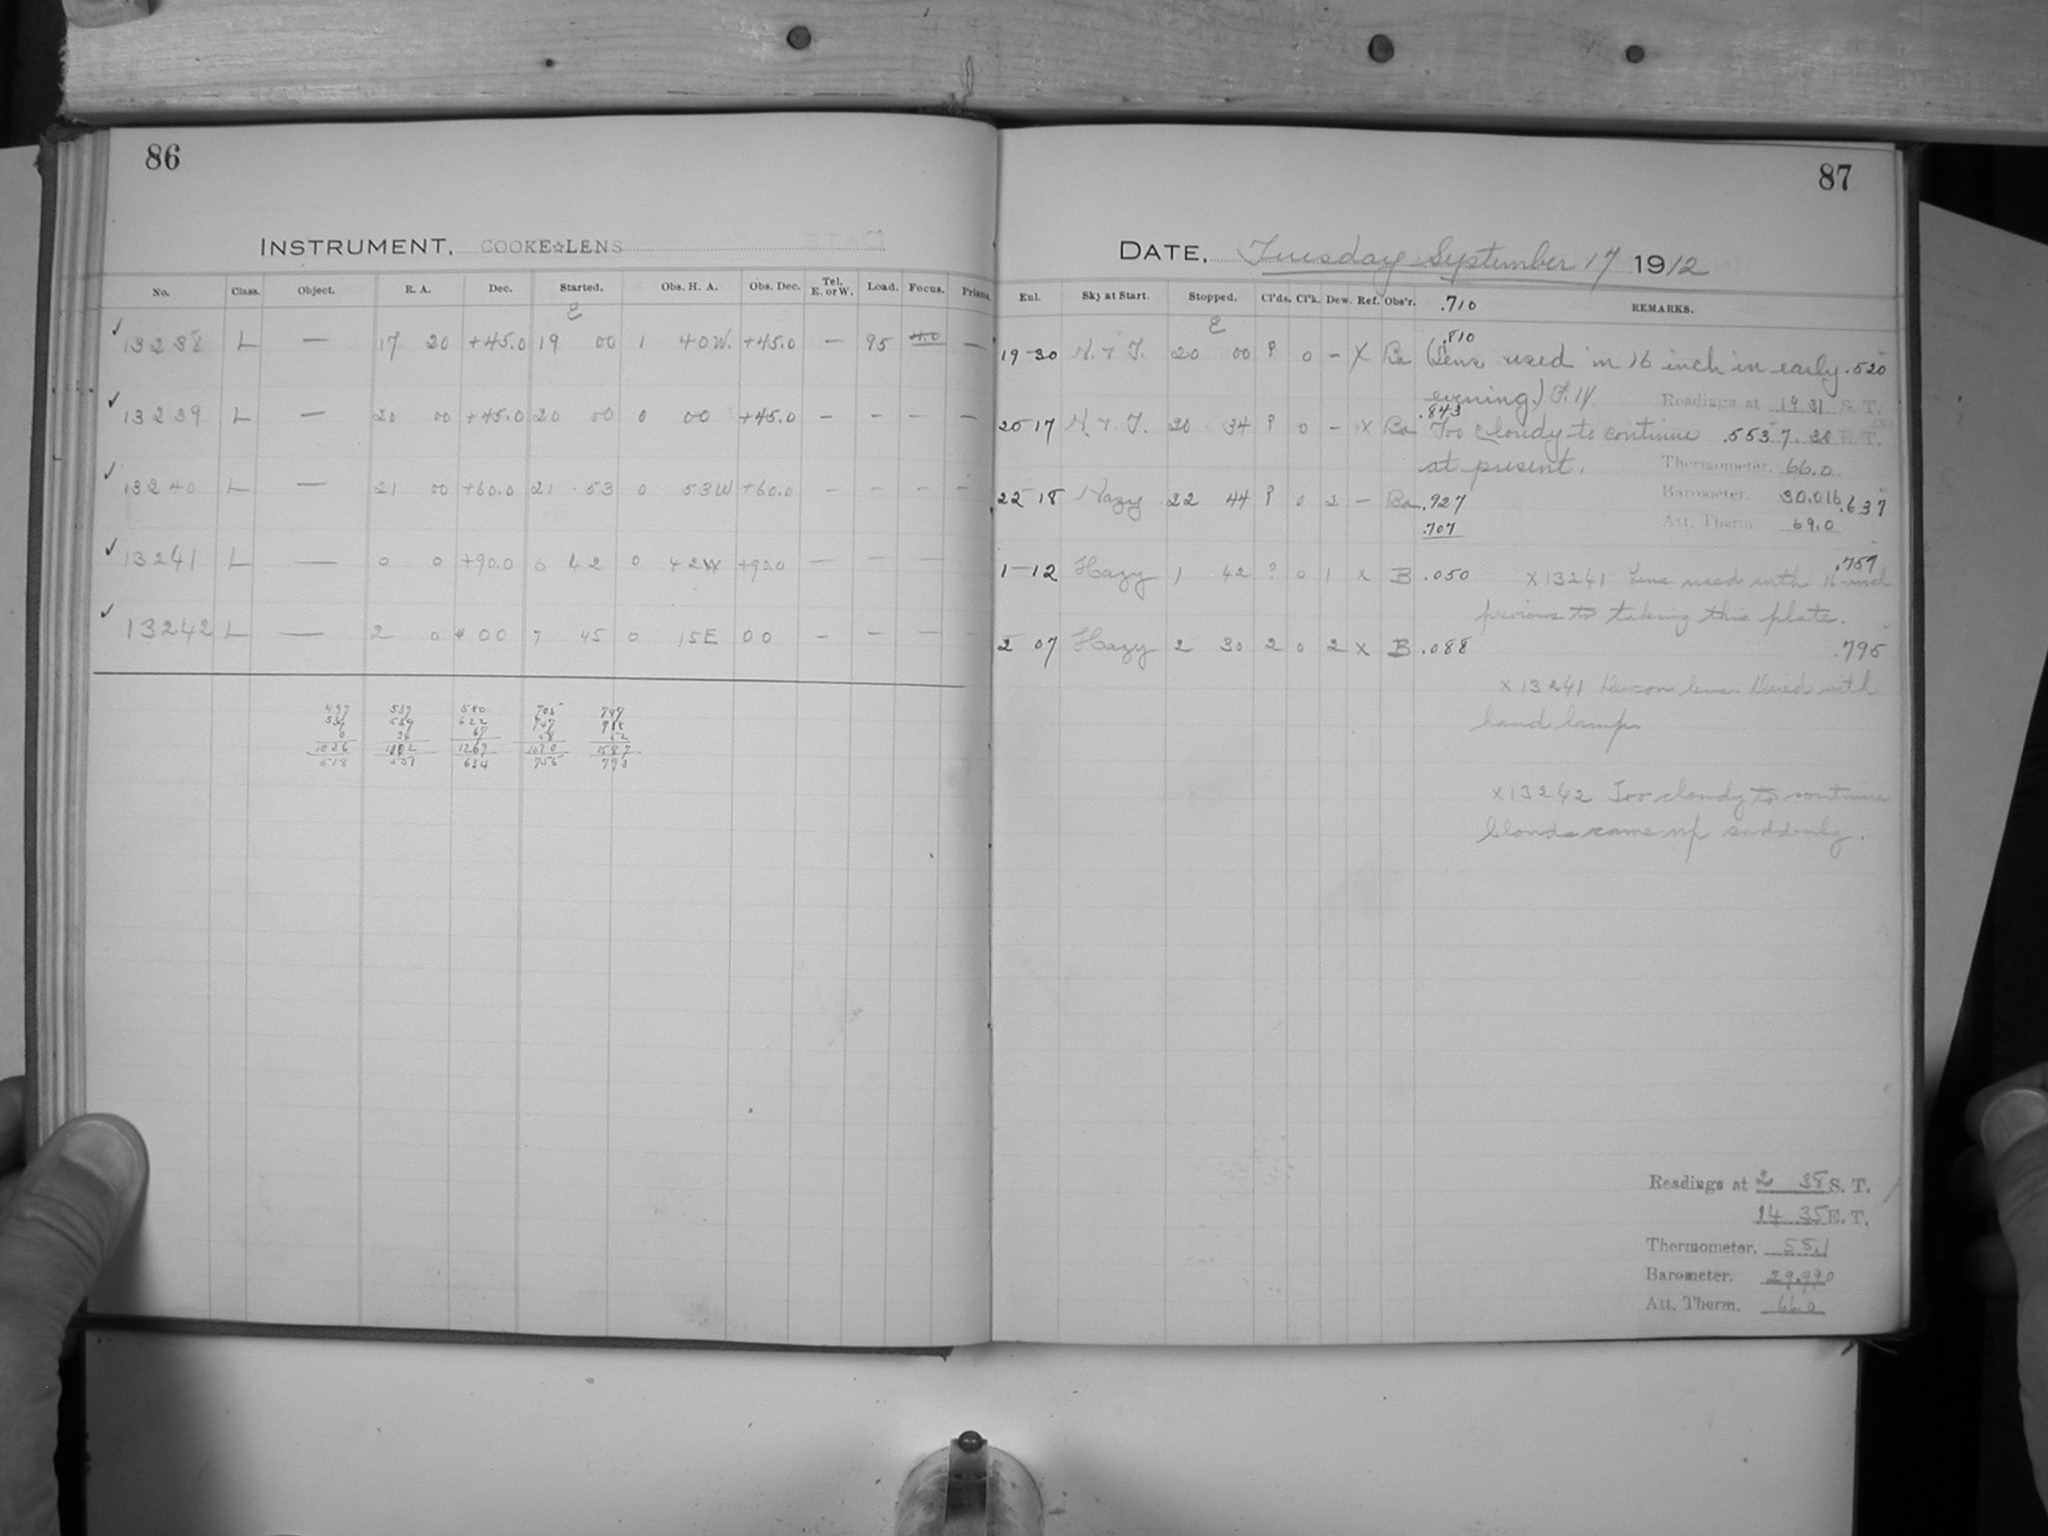 86
INSTRUMENT, COOKE☆LENS
No. Class. Object. R. A. Dec. Started. Obs. H. A. Obs. Dec. Tel. E. or W. Load. Focus. Prisms.
E
✓ 13238 L — 17 20 +45.0 19 00 1 40W. +45.0 — 95 —
✓ 13239 L — 20 00 +45.0 20 00 0 00 +45.0 — — — —
✓ 13240 L — 21 00 +60.0 21 53 0 53W +60.0 — — — —
✓ 13241 L — 0 0 +90.0 0 42 0 42W +90.0 — — —
✓ 13242 L — 2 0 00 45 0 15E 00 — — — —
497 539 580 705 747
539 559 622 747
0 24 67 68
1036 1269
518 634 755 793
87
DATE, Tuesday September 17 1912
Eul. Sky at Start. Stopped. Cl'ds. Cl'k. Dew. Ref. Obs'r. .710 REMARKS.
E
.810
19-30 20 00 ? 0 — X Ba (Lens used in 16 inch in early .520
evening.) Readings at 19 31 S. T.
.843
20-17 20 34 ? 0 — X Ba Too cloudy to continue .553 7. 30 E. T.
at present. Thermometer. 66.0
22-18 Hazy 22 44 ? 0 2 — Ba .927 Barometer. 30.016 .637
.707 Att. Therm. 69.0
.759
1-12 Hazy 1 42 ? 0 1 x B .050 x 13241 Lens used with 16 inch
previous to taking this plate.
2 07 Hazy 2 30 2 0 2 x B .088 .795
x 13241 Dew on lens. Dried with
hand lamp.
x 13242 Too cloudy to continue
Clouds came up suddenly.
Readings at 2 38 S. T.
14 35 E. T.
Thermometer. 58.1
Barometer. 29.990
Att. Therm. 66.0